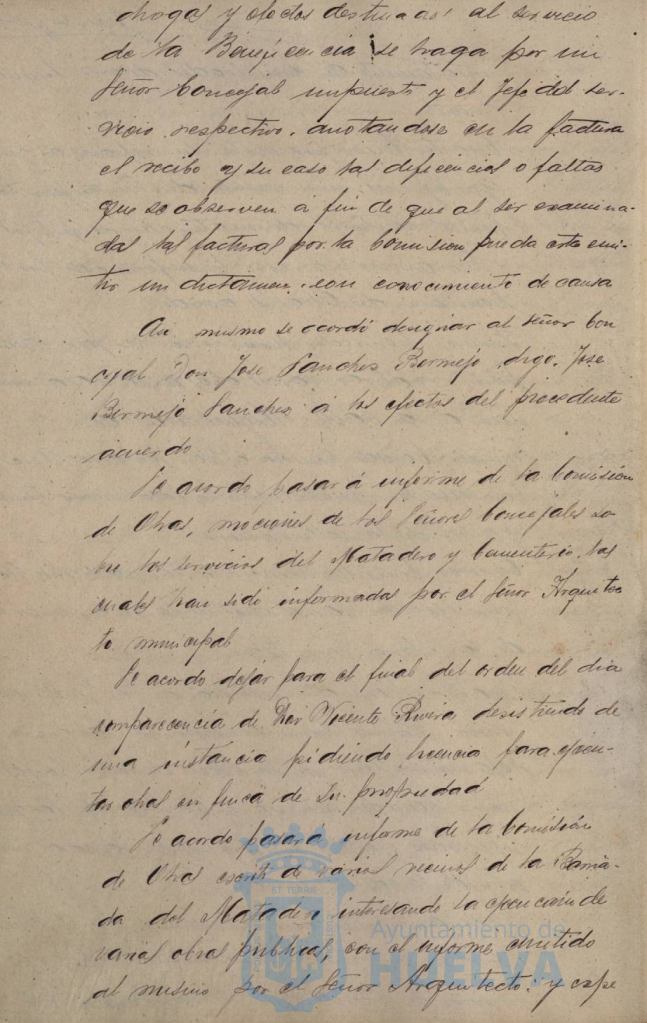 drogas y efectos destinados al servicio
de la Beneficencia se haga por un
Señor Concejal inpuesto y el Jefe del ser-
vicio respectivo, anotandose en la factura
el recibo y su caso las deficencias o faltas
que se observen a fin de que al ser examina-
das las facturas por la Comision pueda esta emi-
tir un dictamen con conocimiento de causa
Asi mismo se acordó designar al Señor Con
cejal Don Jose Sanches Bermejo, digo, Jose
Bermejo Sanches a los efectos del precedente
acuerdo
Se acordo pasar á informe de la Comisión
de Obras, mociones de los Señores Concejales so
bre los servicios del Matadero y Cementerio, las
cuales han sido informadas por el Señor Arquitec
to municipal
Se acordo dejar para el final del orden del dia
comparecencia de Don Vicente Rivera desistiendo de
una instancia pidiendo licencia para ejecu-
tar obras en finca de su propiedad
Se acordo pasar á informe de la Comisión
de Obras escrito de varios vecinos de la Barria-
da del Matadero interesando la ejecución de
varias obras publicas, con el informe emitido
al mismo por el Señor Arquitecto, y expe
Ayuntamiento de
HUELVA